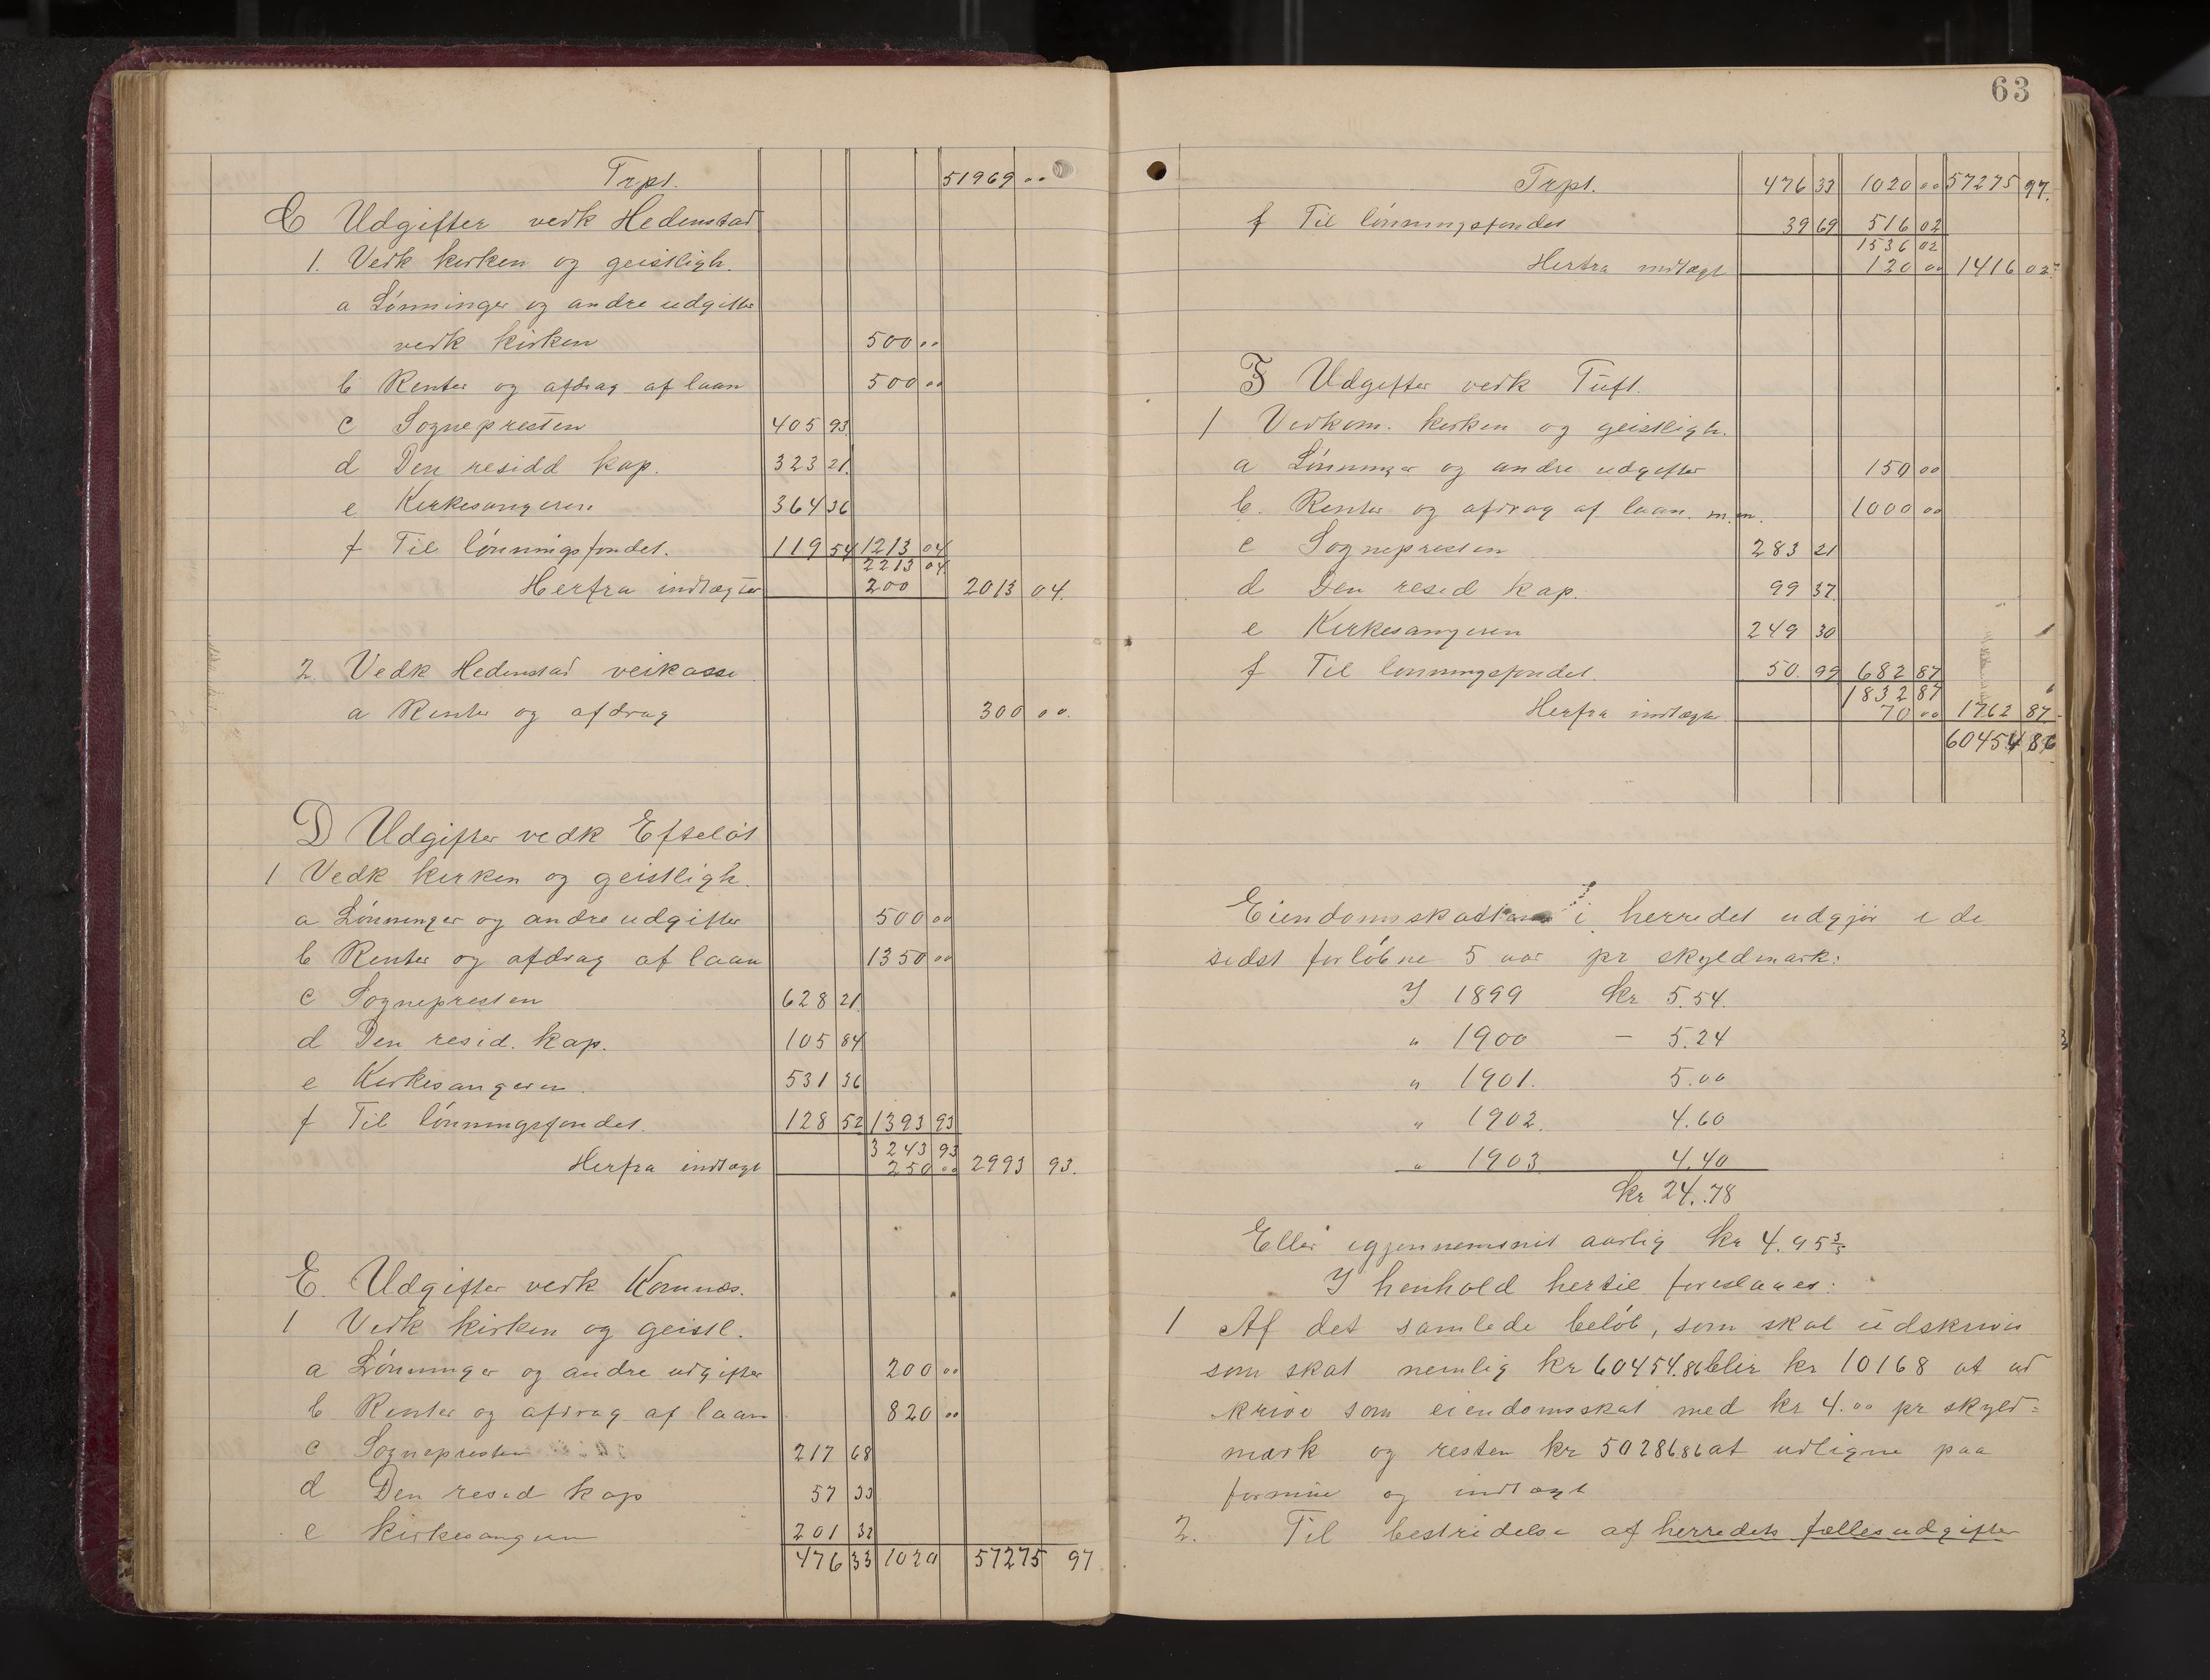 Trpt. 51969 00
C Udgifter vedk Hedenstad
1. Vedk kirken og geistligh.
a Lønninger og andre udgifter
vedk kirken 500 00
b Renter og afdrag af laan 500 00
c Sognepresten 405 93
d Den residd kap. 323 21
e Kirkesangeren 364 36
f Til lønningsfondet. 119 54 1213 04
2213 04
Herfra indtægter 200 2013 04.
2. Vedk Hedenstad veikasse
a Renter og afdrag 300 00.
D Udgifter vedk Efteløt
1 Vedk kirken og geistligh.
a Lønninger og andre udgifter 500 00
b Renter og afdrag af laan 1350 00
c Sognepresten 628 21
d Den resid. kap. 105 84
e Kirkesangeren. 531 36
f Til lønningsfondet. 128 52 1393 93
3243 93
Herfra indtægt 250 00 2993 93.
E. Udgifter vedk Komnæs.
1 Vedk kirken og geistl.
a Lønninger og andre udgifter 200 00
b Renter og afdrag af laan 820 00
c Sognepresten 217 68
d Den resid kap 57 33
e kirkesangeren 201 32
476 33 1020 57275 97
63
Trpt. 476 33 1020 00 57275 97.
f Til lønningsfondet 39 69 516 02
1536 02
Herfra indtægt 120 00 1416 02
F Udgifter vedk Tuft.
1 Vedkom. kirken og geistligh.
a Lønninger og andre udgifter 150 00
b. Renter og afdrag af laan. m.m. 1000 00
c Sognepresten 283 21
d Den resid kap. 99 37
e Kirkesangeren 249 30
f Til lønningsfondet. 50. 99 682 87
1832 87
Herfra indtægt 70 00 1762 87
60454 86
Eiendomsskatten i herredet udgjør i de
sidst forløbne 5 aar pr skyldmark:
I 1899 kr 5.54.
" 1900 — 5.24
" 1901. 5.00
" 1902. 4.60
" 1903 4.40
kr 24.78
Eller igjennemsnit aarlig kr 4.95 3/5
I henhold hertil foreslaaes:
1 Af det samlede beløb, som skal udskrives
som skat nemlig kr 60454.86 blir kr 10168 at ud
skrive som eiendomsskat med kr 4.00 pr skyld=
mark og resten kr 50286 86 at udligne paa
formue og indtægt
2. Til bestridelse af herredets fællesudgifter